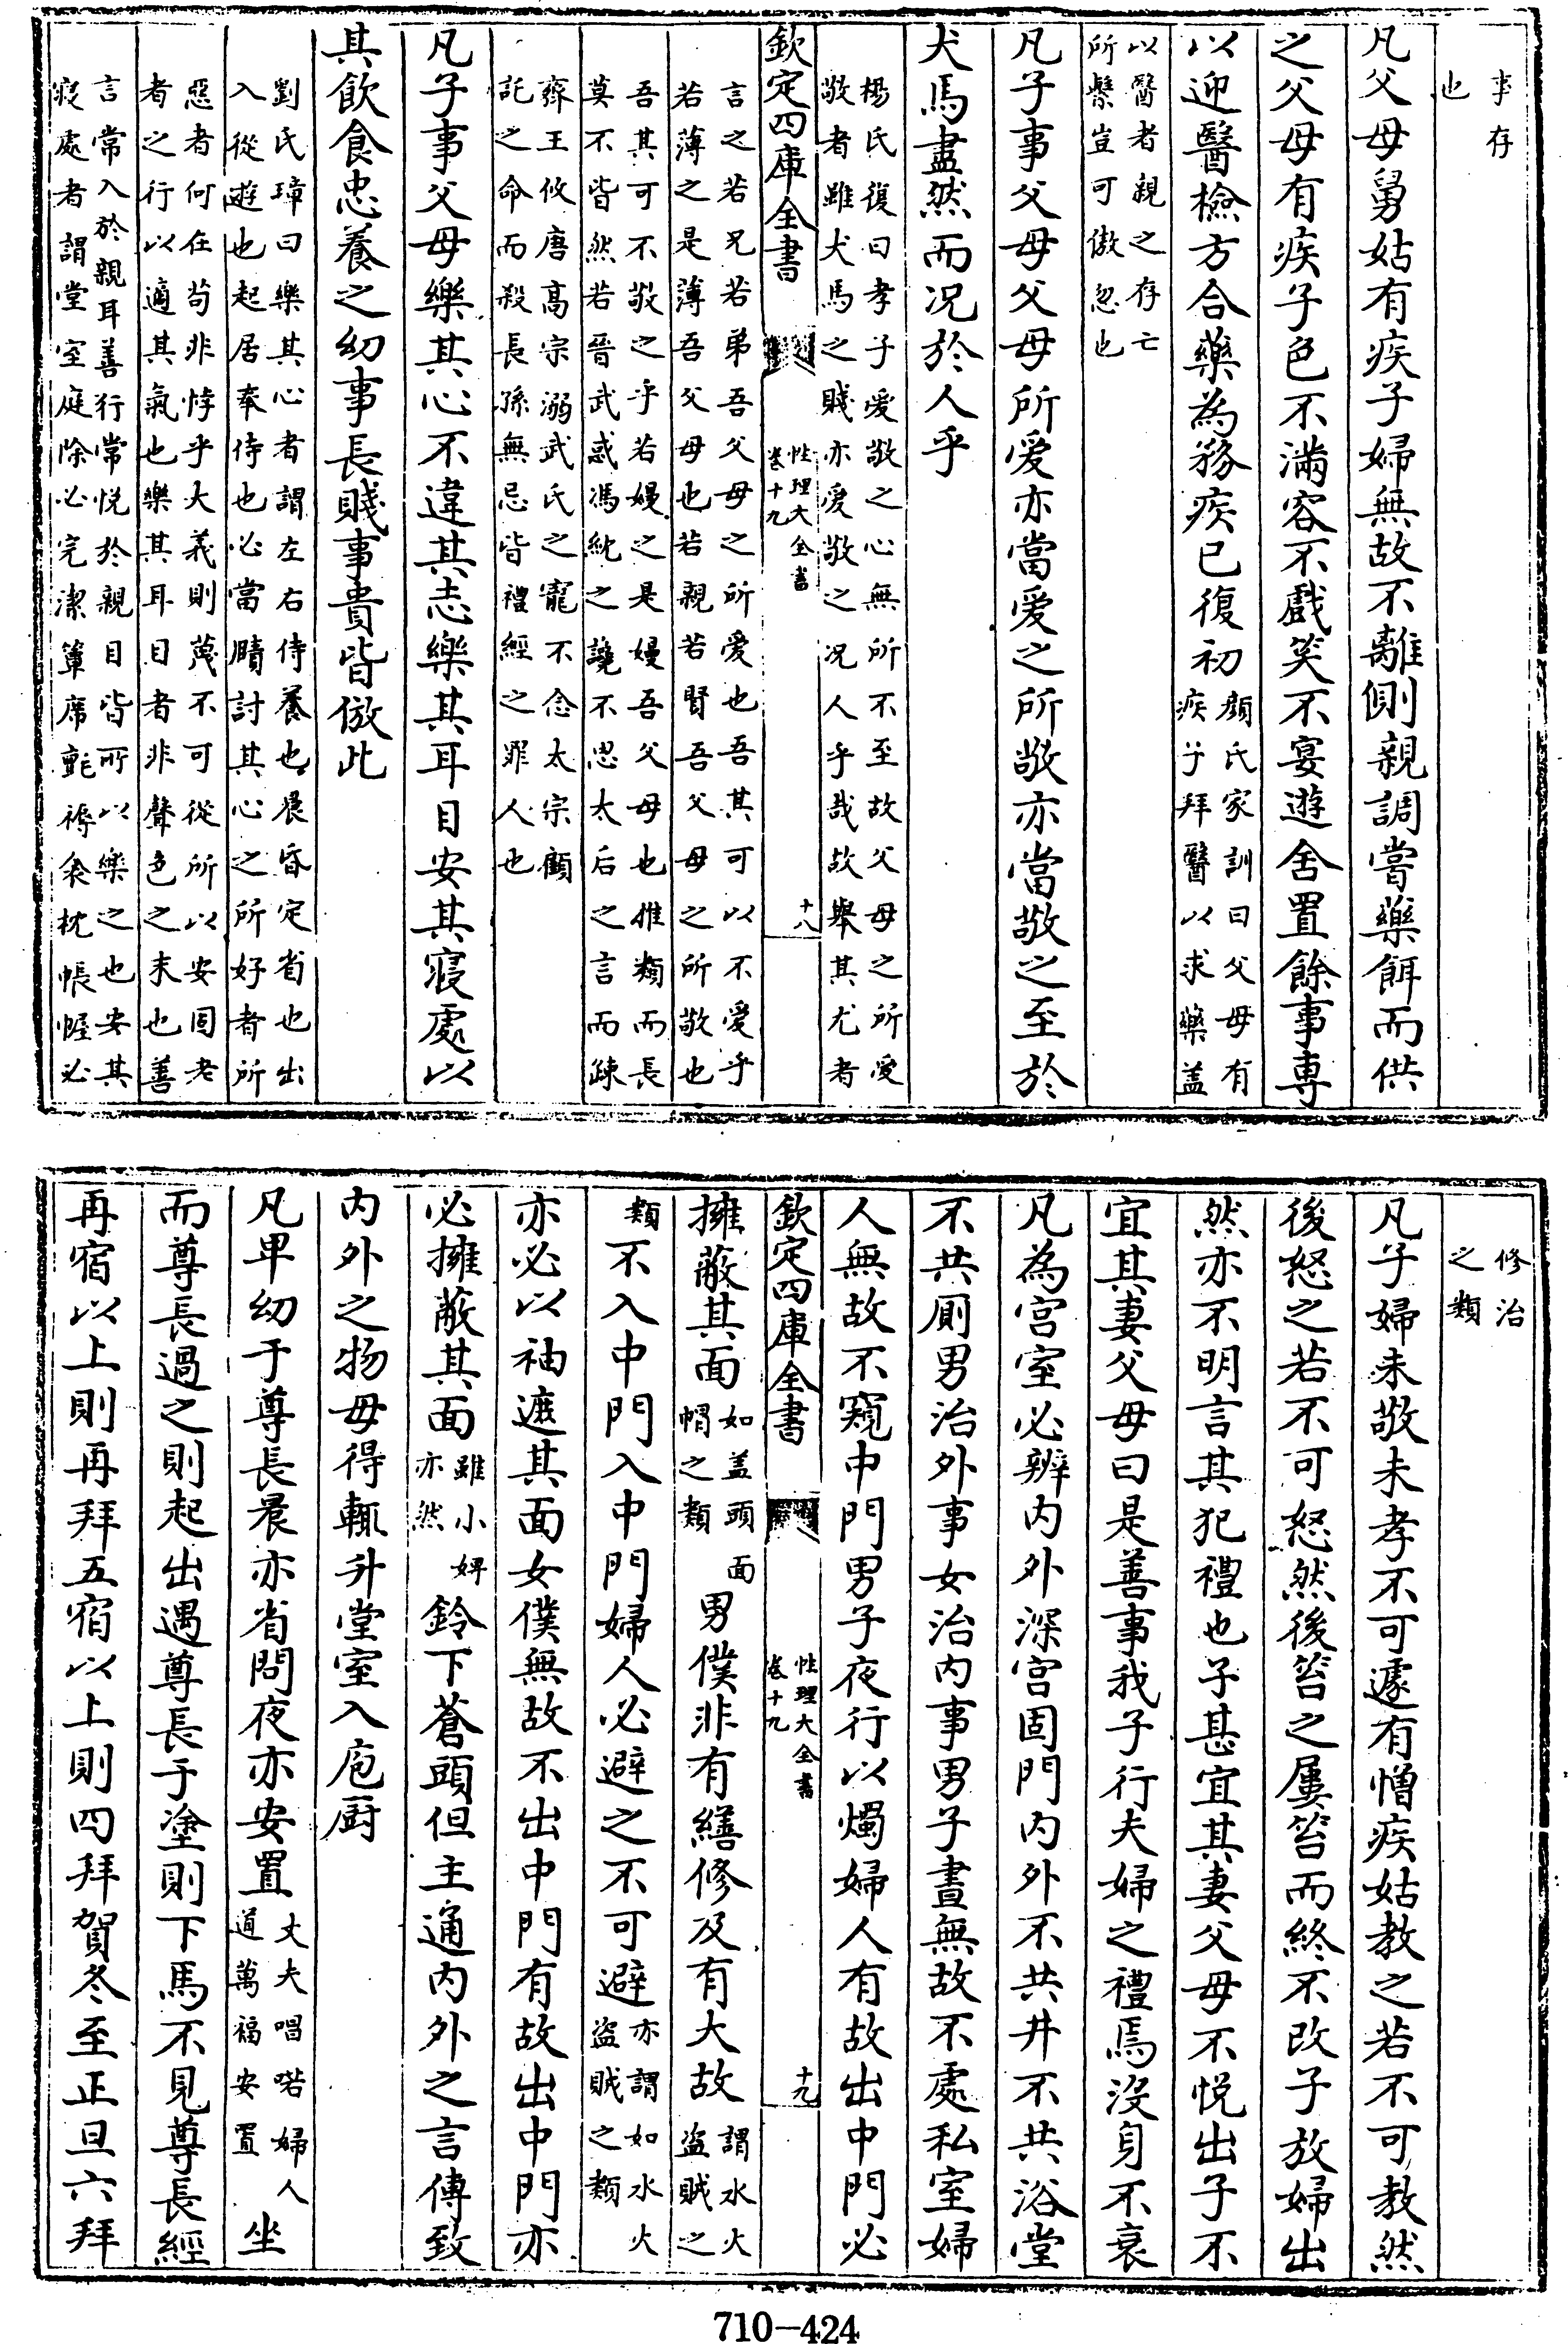 事存
也
凡父母舅姑有疾子婦無故不離側親調嘗藥餌而供
之父母有疾子色不滿容不戲笑不宴遊舍置餘事專
以迎醫檢方合藥為務疾已復初
顔氏家訓曰父母有
疾子拜醫以求藥盖
以醫者親之存亡
所繫豈可傲忽也
凡子事父母父母所愛亦當愛之所敬亦當敬之至於
犬馬盡然而况於人乎
楊氏復曰孝子愛敬之心無所不至故父母之所愛
敬者雖犬馬之賤亦愛敬之况人乎哉故舉其尤者
欽定四庫全書
性理大全書
卷十九
十八
言之若兄若弟吾父母之所愛也吾其可以不愛乎
若薄之是薄吾父母也若親若賢吾父母之所敬也
吾其可不敬之乎若嫚之是嫚吾父母也推類而長
莫不皆然若晉武惑馮紞之讒不思太后之言而疎
齊王攸唐髙宗溺武氏之寵不念太宗顧
託之命而殺長孫無忌皆禮經之罪人也
凡子事父母樂其心不違其志樂其耳目安其寢處以
其飲食忠養之幼事長賤事貴皆倣此
劉氏璋曰樂其心者謂左右侍養也晨昏定省也出
入從遊也起居奉侍也必當賾討其心之所好者所
惡者何在苟非悖乎大義則蔑不可從所以安固老
者之行以適其氣也樂其耳目者非聲色之末也善
言常入於親耳善行常悦於親目皆所以樂之也安其
寢處者謂堂室庭除必完潔簟席氈褥衾枕帳幄必
修治
之類
凡子婦未敬未孝不可遽有憎疾姑教之若不可教然
後怒之若不可怒然後笞之屢笞而終不改子放婦出
然亦不明言其犯禮也子甚宜其妻父母不悦出子不
宜其妻父母曰是善事我子行夫婦之禮焉没身不衰
凡為宫室必辨内外深宫固門内外不共井不共浴堂
不共厠男治外事女治内事男子晝無故不處私室婦
人無故不窺中門男子夜行以燭婦人有故出中門必
欽定四庫全書
性理大全書
卷十九
十九
擁蔽其面
如盖頭面
帽之類
男僕非有繕修及有大故
謂水火
盗賊之
類
不入中門入中門婦人必避之不可避
亦謂如水火
盗賊之類
亦必以袖遮其面女僕無故不出中門有故出中門亦
必擁蔽其面
雖小婢
亦然
鈴下蒼頭但主通内外之言傳致
内外之物毋得輒升堂室入庖厨
凡卑幼于尊長晨亦省問夜亦安置
丈夫唱喏婦人
道萬福安置
坐
而尊長過之則起出遇尊長于塗則下馬不見尊長經
再宿以上則再拜五宿以上則四拜賀冬至正旦六拜
710-424